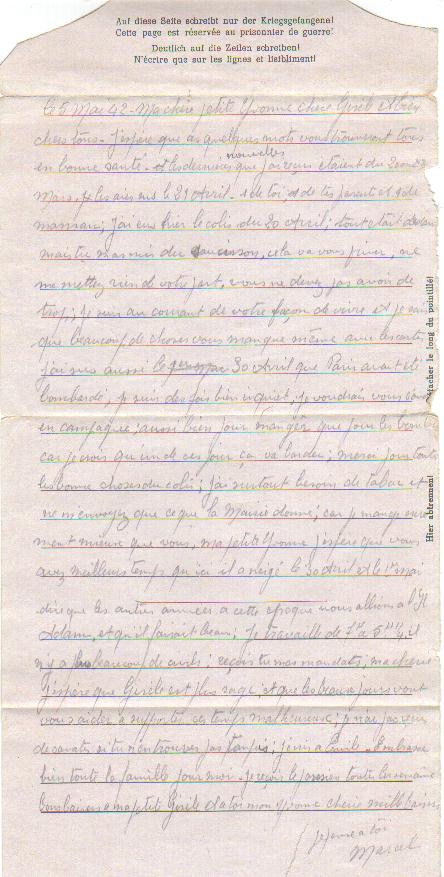 Auf diese Seite schreibt nur der Kriegsgefangene!
Cette page est réservée au prisonnier de guerre!
Deutlich auf die Zeilen schreiben!
N'écrire que sur les lignes et lisiblement!
le 5 Mai 42 - Ma chère petite Yvonne chère Gisèle et bien
chers tous - J'espère que ces quelques mots vous trouveront tous
en bonne santé - et les dernières nouvelles que j'ai reçu étaient du
Mars, je les aies eus le 21 Avril - de toi, de tes parents et de
maman; j'ai eu hier le colis du 20 Avril; tout était
mais tu mas mis du saucisson, cela va vous priver, ne
me mettez rien de votre part, vous ne devez pas avoir de
trop; je suis au courant de votre façon de vivre et je sais
que beaucoup de choses vous manque même avec les cartes
j'ai su aussi le 30 Avril que Paris avait été
bombardé, je suis des fois bien inquiet, je voudrais vous
en campagne; aussi bien pour manger que pour les bombes
car je crois qu'un de ces jour ça va barder; merci pour toute
les bonne choses du colis; j'ai surtout besoin de tabac et
ne m'envoyez que ce que la Mairie donne; car je mange
ment mieux que vous, ma petite Yvonne j'espère que vous
avez meilleurs temps qu'ici il a neigé le 30 Avril et le 1er mai
dire que les autres années a cette époque nous allions a l'Isle
Adam, et qu'il faisait beau; Je travaille de 7h à 5h 1/4, il
n'y a plus beaucoup de; reçois tu mes mandats, ma chérie
j'espère que Gisèle est plus sage, et que les beaux jours vont
vous aider a supporter ces temps malheureux; je n'ai pas reçu
de si tu n'en trouve pas tant pis; Emile - Embrasse
bien toute la famille pour moi - je reçois le toute les semaine
bons baisers a ma petite Gisèle et a toi mon Yvonne chérie mille baisers
je pense a toi
Marcel
Détacher le long du pointillé!
Hier abtrennen!